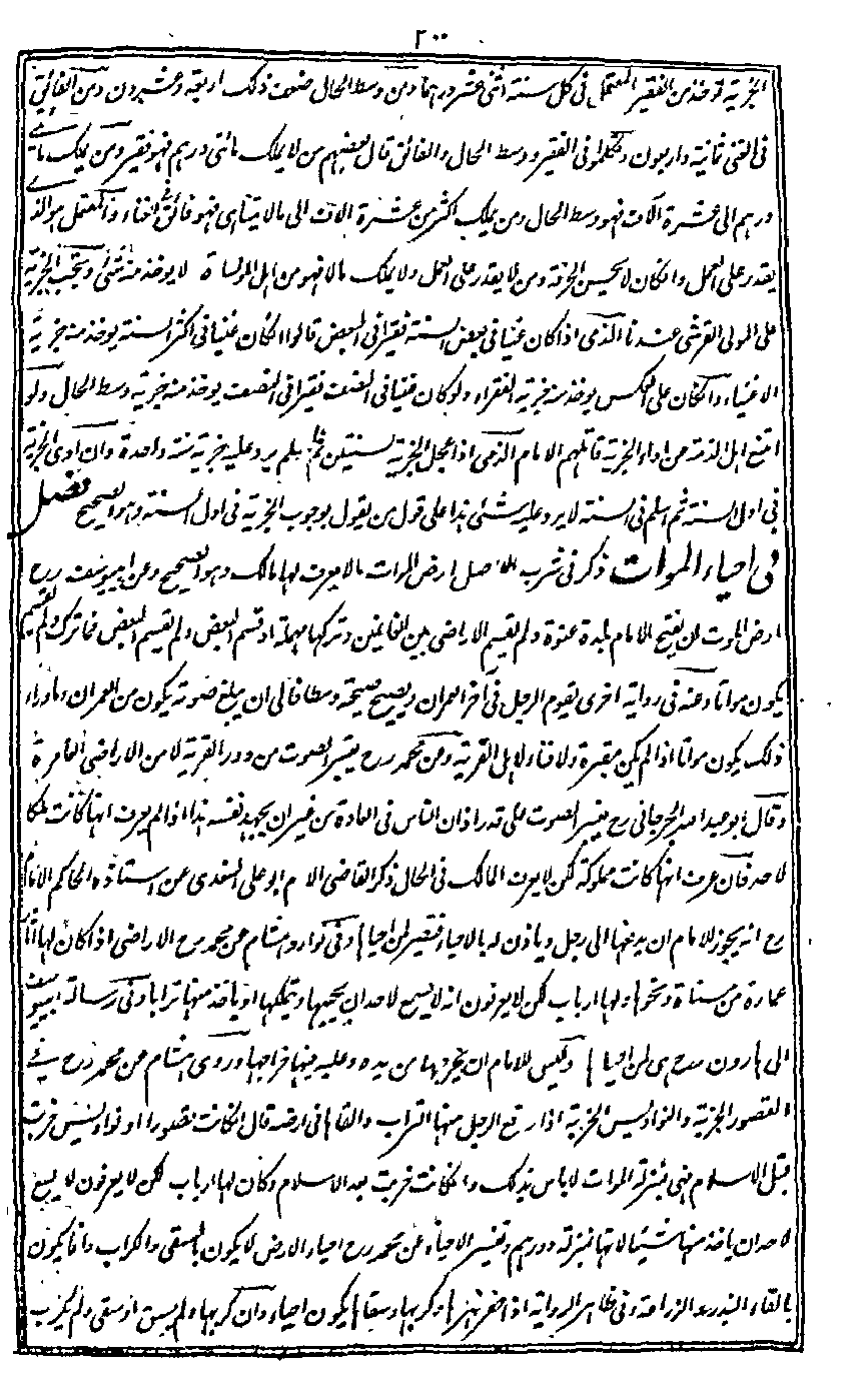 ٢٠٠
الجزية توخذ من الفقير المعتمل فى كل سنة اثنى عشر درهما ومن وسط الحال ضعف ذلك اربعة وعشرون ومن الفائق
فى الغنى ثمانية واربعون وتكلموا فى الفقير ووسط الحال والفائق قال بعضهم من لا يملك مائتى درهم فهو فقير ومن يملك مائتى
درهم الى عشرة آلاف فهو وسط الحال ومن يملك اكثر من عشرة الاف الى مالا يتناهى فهو فائق الغناء والمعتمل هو الذ
يقدر على العمل وانكان لا يحسن الحرفة ومن لا يقدر على العمل ولا يملك مالا فهو من اهل المواساة لا يوخذ منه شئ وتجب الجزية
على المولى القرشى عندنا الذمى اذا كان غنيا فى بعض السنة فقيرا فى البعض قالوا انكان غنيا فى اكثر السنة يوخذ منه جزية
الاغنياء وانكان على العكس يوخذ منه جزية الفقراء ولو كان غنيا فى النصف فقيرا فى النصف يوخذ منه جزية وسط الحال ولو
امتنع اهل الذمة عن اداء الجزية قاتلهم الامام الذمى اذا عجل الجزية لسنتين ثم اسلم يرد عليه جزية سنة واحدة وان ادى الجزية
فى اول السنة ثم اسلم فى السنة لا يرد عليه شئ هذا على قول من يقول بوجوب الجزية فى اول السنة وهو الصحيح فصل
فى احياء الموات ذكر فى شرب الاصل ارض الموات مالا يعرف لها مالك وهو الصحيح وعن ابيوسف رح
ارض الموت ان يفتح الامام بلدة عنوة ولم يقسم الاراضى بين الغانمين وتركها مهملة او قسم البعض ولم يقسم البعض فما ترك ولم يقسم
يكون مواتا وعنه فى رواية اخرى يقوم الرجل فى آخر العمران ويصيح صيحة وسطا فالى ان يبلغ صوته يكون من العمران وما وراء
ذلك يكون مواتا اذا لم يكن مقبرة ولا فناء لاهل القرية وعن محمد رح يعتبر الصوت من دور القرية لا من الاراضى العامرة
وقال ابو عبد الله الجرجانى رح يعتبر الصوت على قدر اذان الناس فى العادة من غير ان يجهد نفسه هذا اذا لم يعرف انها كانت ملكا
لاحد فان عرف انها كانت مملوكة لكن لا يعرف المالك فى الحال ذكر القاضى الامام ابو على السغدى عن استاذه الحاكم الامام
رح انه يجوز للامام ان يدفعها الى رجل وياذن له بالاحياء فتصير لمن احياها وفى نوادر هشام عن محمد رح الاراضى اذا كان لها آثار
عمارة من مسناة ونحوها ولها ارباب لكن لا يعرفون انه لا يسع لاحد ان يحييها ويتملكها او ياخذ منها ترابا وفى رسالة ابيوسف
الى هارون رح هى لمن احياها وليس للامام ان يخرجها من يده وعليه فيها خراجها وروى هشام عن محمد رح فى
القصور الخربة والنواويس الخربة اذا رفع الرجل منها التراب والقاها فى ارضه قال انكانت قصورا او نواويس خربت
قبل الاسلام فهى بمنزلة الموات لا باس بذلك وانكانت خربت بعد الاسلام وكان لها ارباب لكن لا يعرفون لا يسع
لاحد ان ياخذ منها شيئا لانها بمنزلة دورهم وتفسير الاحياء عن محمد رح احياء الارض لا يكون بالسقى والكراب وانما يكون
بالقاء البذر والزراعة وفى ظاهر الرواية اذا حفر نهرها وكربها وسقاها يكون احياء وان كربها ولم يسق او سقى ولم يكرب